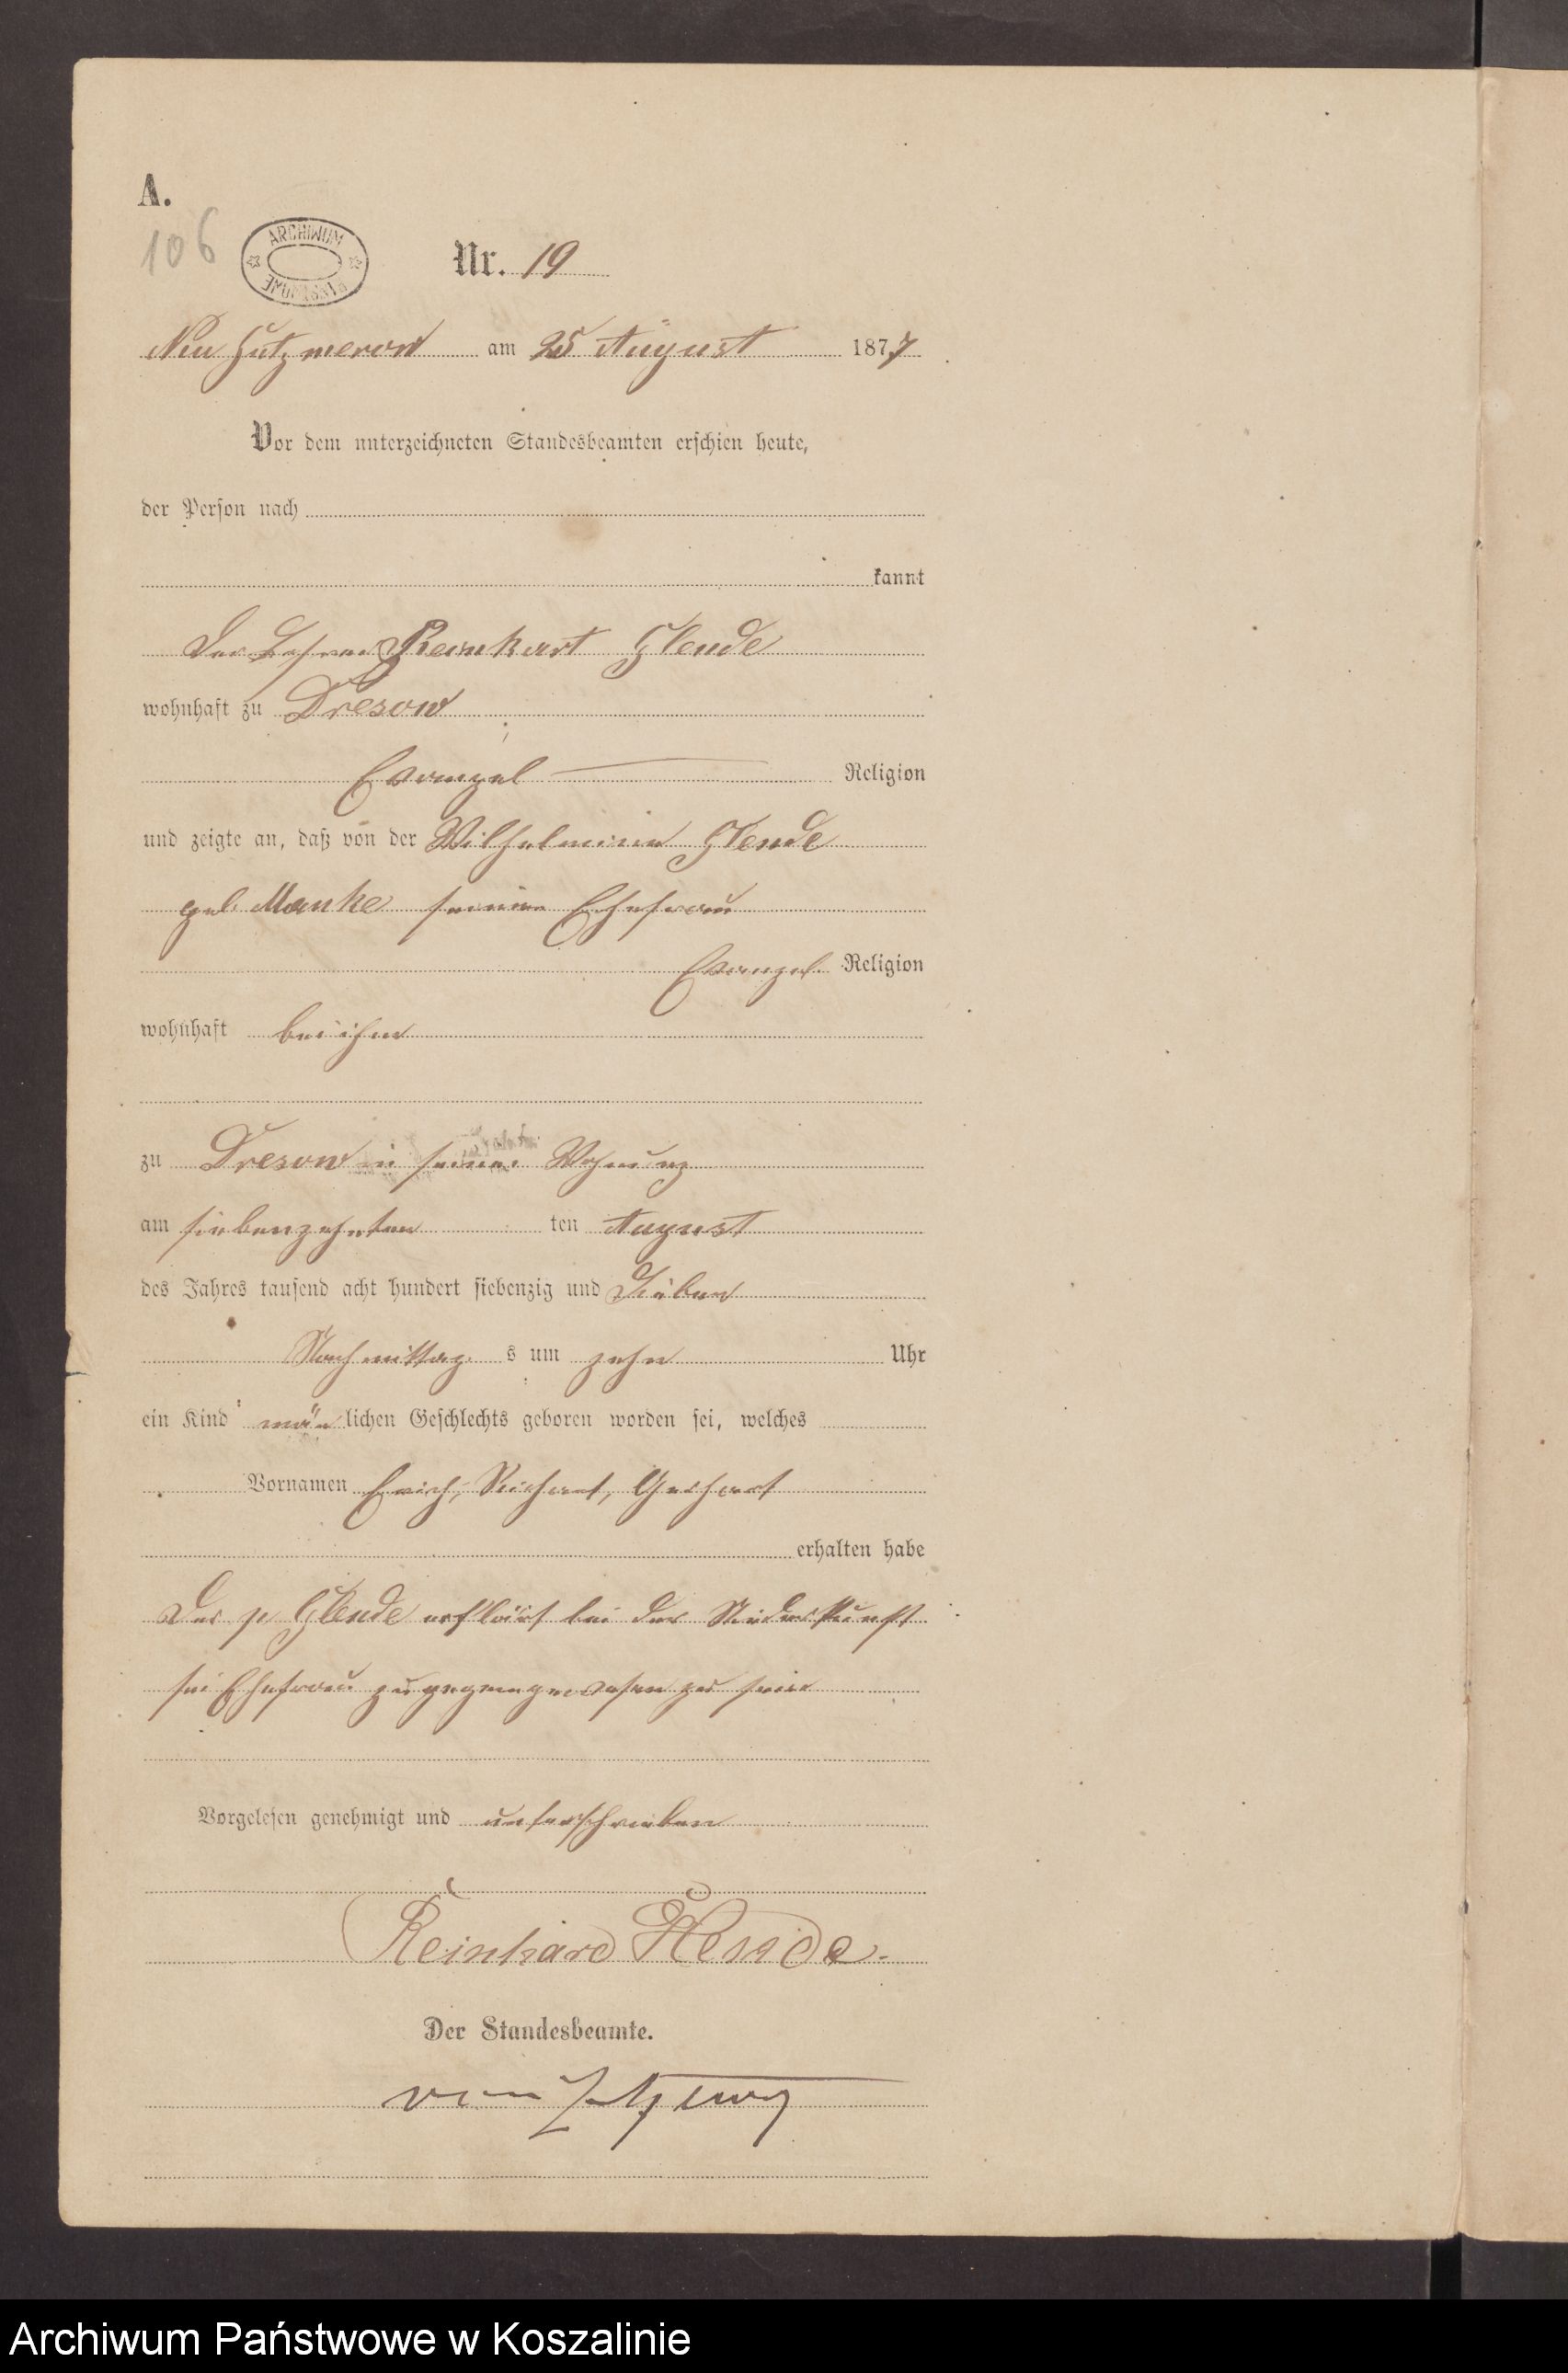 A.
106
ARCHIWUM
PAŃSTWOWE
Nr. 19
Neu Gutzmerow am 25 August 1877
Vor dem unterzeichneten Standesbeamten erschien heute,
der Person nach
kannt
Der Lehrer Reinhart Glende
wohnhaft zu Dresow
Evangel Religion
und zeigte an, daß von der Wilhelmine Glende
geb Manke seiner Ehefrau
Evangel. Religion
wohnhaft bei ihm
zu Dresow in seiner Wohnung
am siebenzehnten ten August
des Jahres tausend acht hundert siebenzig und Sieben
Nachmittag s um zehn Uhr
ein Kind män lichen Geschlechts geboren worden sei, welches
Vornamen Erich, Richart, Gerhart
erhalten habe
Der p Glende erklärt bei der Niederkunft
sei Ehefrau zugegengewesen zu sein
Vorgelesen genehmigt und unterschrieben
Reinhard Glende.
Der Standesbeamte.
von
Archiwum Państwowe w Koszalinie